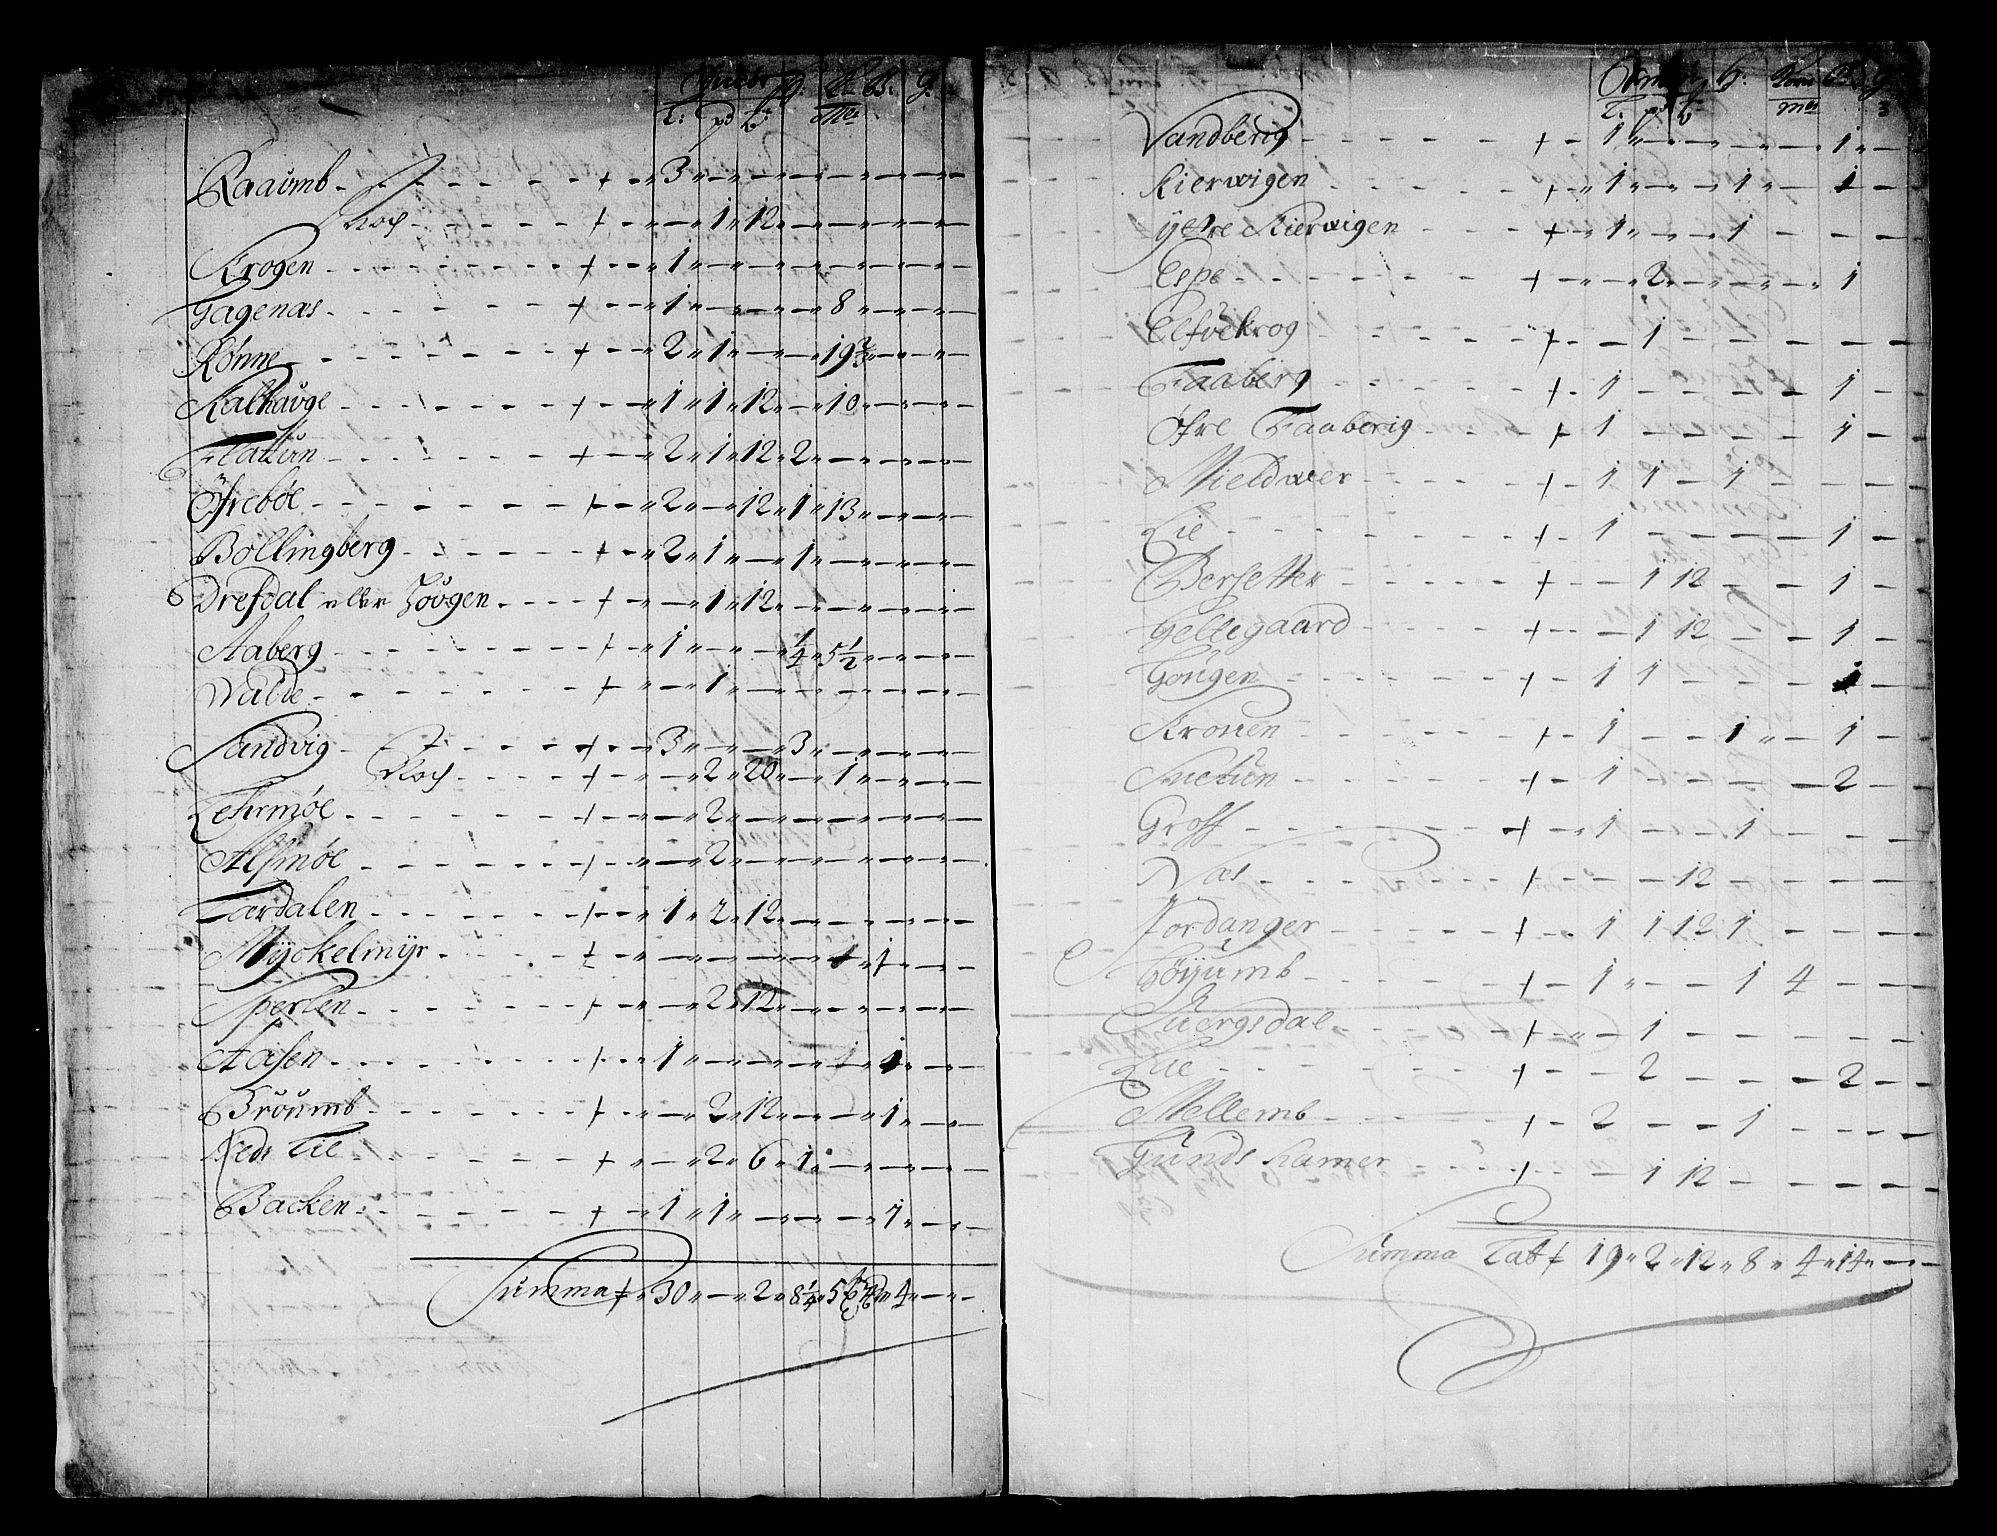 T: pd
Raaumb + 3
Noch + 1 12
Krogen + 1
Hagenæs + 1 8
Rønne + 2 1 19 2/3
Kalhauge + 1 1 12 10
Flattun + 2 1 12 2
Øfrebøe + 2 12 1 13
Bollingberg + 2 1 1
Drefdal eller Høvgen + 1 12
Aaberg + 1 1/4 5 1/2
Walde + 1
Sandvig + 3 3
Noch + 2 20 1
Lehrmøe + 2
Alsmøe + 2
Tardalen + 1 2 12
Myckelmyr + 1 1
Sperlen + 2 12
Aasen + 1 1 1
Broumb + 2 12 1
Neds Tie + 2 6 1
Backen + 1 1 1
Summa + 30 2 8 1/4 5 4
Vandberig + 1 1
Kierwigen + 1 1 1
Ydre Kierwigen + 1 1
Espe + 2 1
Elfvekrog + 1
Faaberg + 1 1
Øfre Faaberig + 1 1
Mieldwer + 1 1 1
Lie + 1 1
Bersetter + 1 12 1
Hellegaard + 1 12 1
Hougen + 1 1 1
Kronen + 1 1 1
Svietun + 1 2
Groff + 1 1
Næs + 12
Jordanger + 1 1 12 1
Høyumb + 1 1 4
Fuergsdal + 1
Lie + 2 2
Mellemb + 2 1
Hunds hamer + 1 12
Summa Lat + 19 2 12 8 4 14